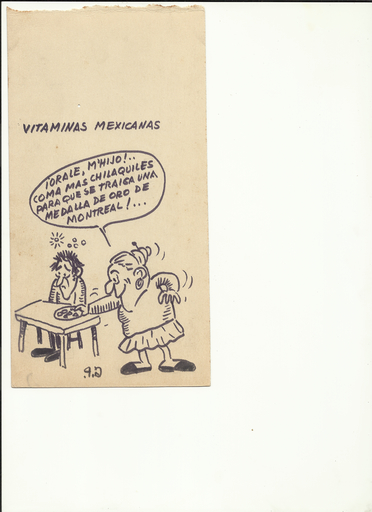 VITAMINAS MEXICANAS
¡ORALE, M'HIJO!..
COMA MAS CHILAQUILES
PARA QUE SE TRAIGA UNA
MEDALLA DE ORO DE
MONTREAL!...